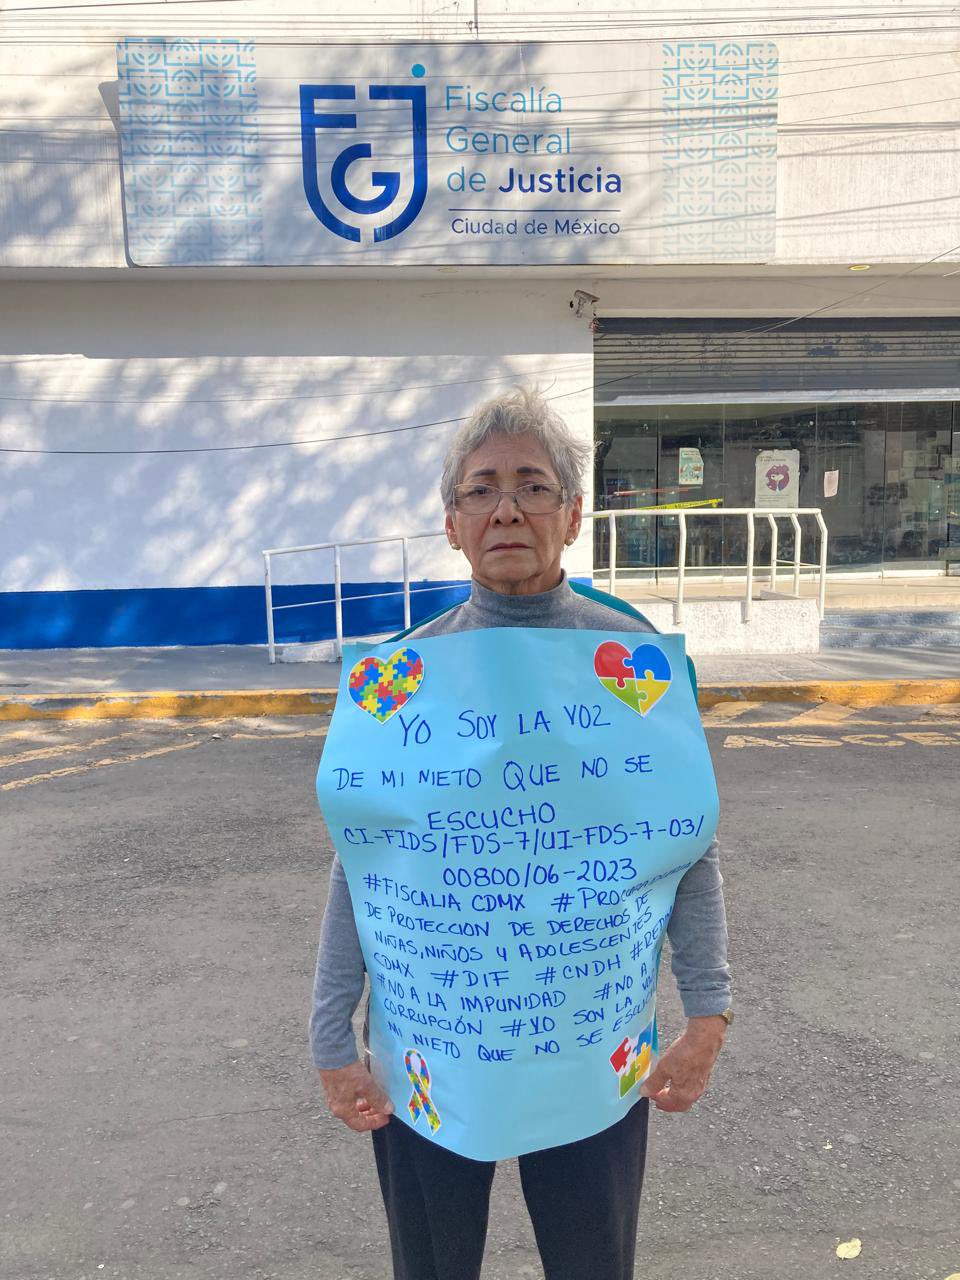 Fiscalía
General
de Justicia
Ciudad de México
YO SOY LA VOZ
DE MI NIETO QUE NO SE
ESCUCHO
CI-FIDS/FDS-7/UI-FDS-7-03/
00800/06-2023
#FISCALIA CDMX #PROCURADURIA
DE PROTECCION DE DERECHOS DE
NIÑAS, NIÑOS Y ADOLESCENTES
CDMX #DIF #CNDH #REDIM
#NO A LA IMPUNIDAD #NO A
CORRUPCIÓN #YO SOY LA VOZ
MI NIETO QUE NO SE